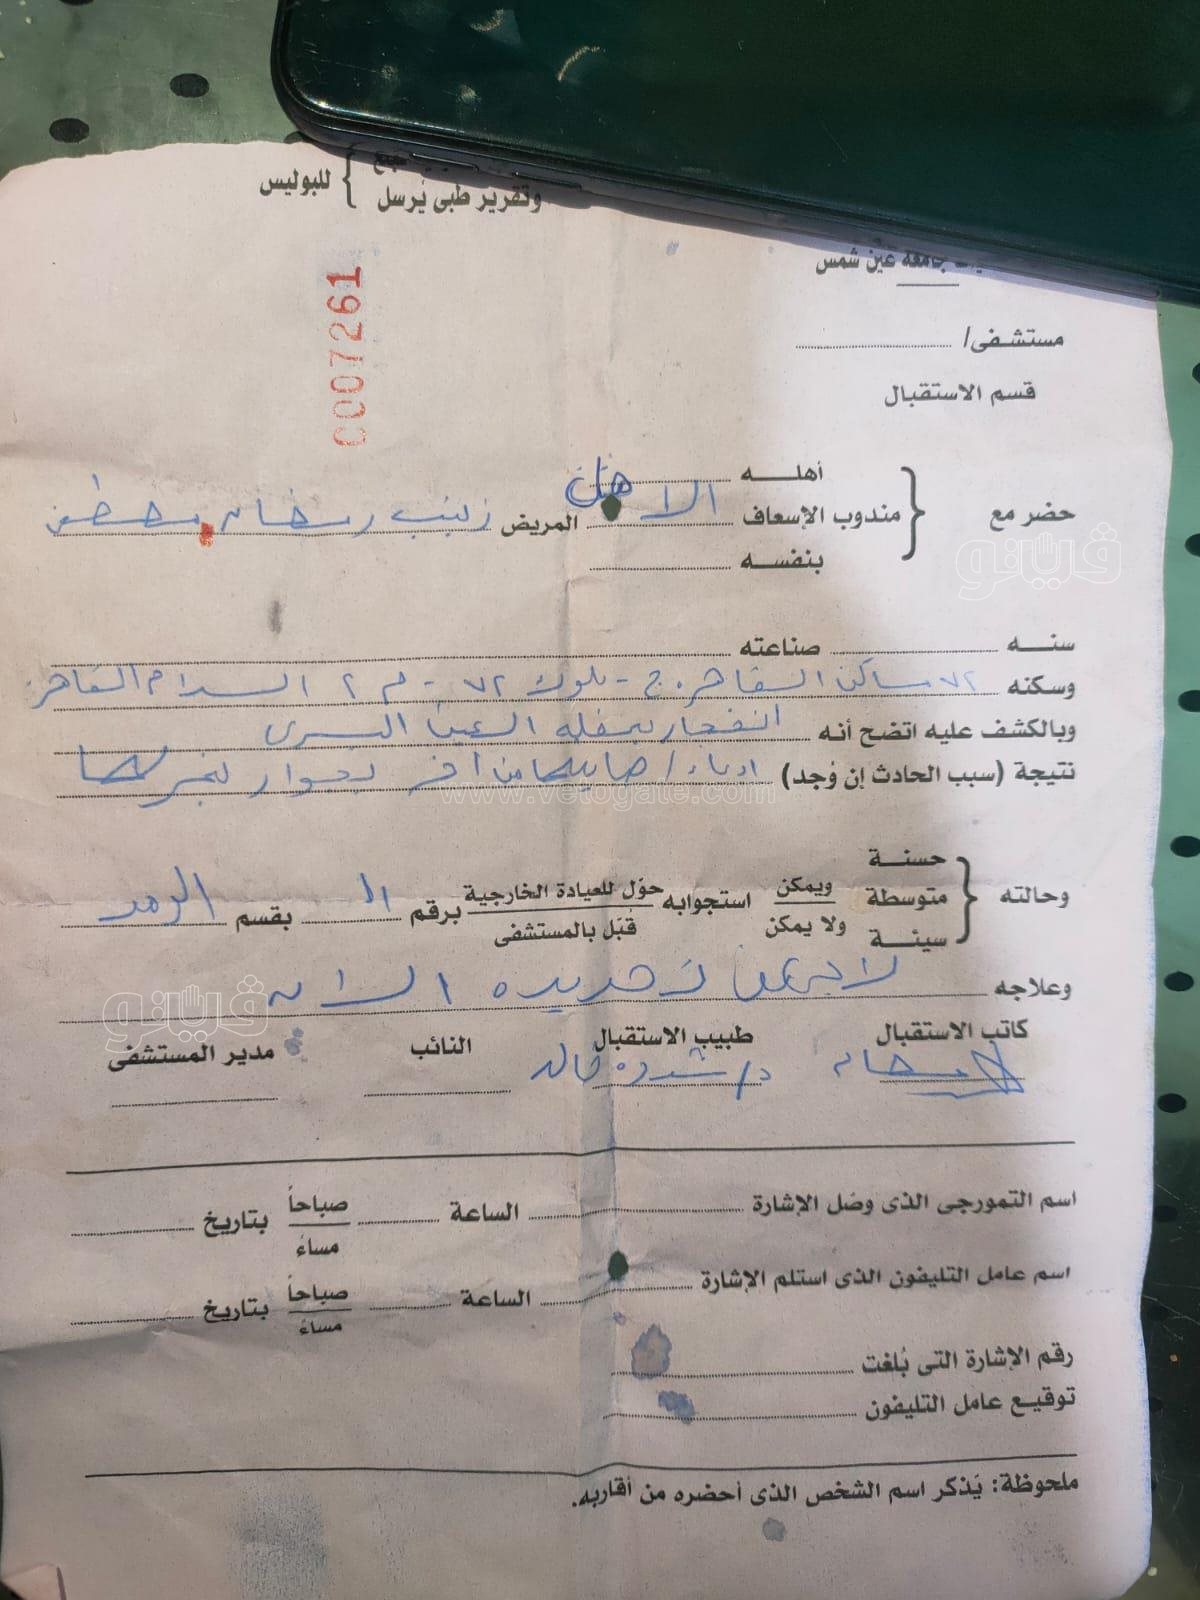 وتقرير طبى يُرسل } للبوليس
جامعة عين شمس
مستشفى/
قسم الاستقبال
C007261
حضر مع { أهله
مندوب الإسعاف الاهل المريض زينب رمضان مصطفى
بنفسه
سنه صناعته
وسكنه ٧٢ مساكن القاهرة بلوك ٧٢ - م ٢ السلام القاهرة
وبالكشف عليه اتضح أنه انفجار بمقلة العين اليسرى
نتيجة (سبب الحادث إن وُجد) ادعاء / من اخر بجوار
وحالته { حسنة
متوسطة
سيئة
ويمكن
ولا يمكن
استجوابه
حوّل للعيادة الخارجية
قبَل بالمستشفى
برقم بقسم الرمد
وعلاجه لا يمكن تحديده الان
كاتب الاستقبال طبيب الاستقبال النائب مدير المستشفى
د/ خالد
اسم التمورجى الذى وصَل الإشارة الساعة صباحاً مساءً بتاريخ
اسم عامل التليفون الذى استلم الإشارة الساعة صباحاً مساءً بتاريخ
رقم الإشارة التى بُلغت
توقيع عامل التليفون
ملحوظة: يَذكر اسم الشخص الذى أحضره من أقاربه.
ڤيتو
www.vetogate.com
ڤيتو